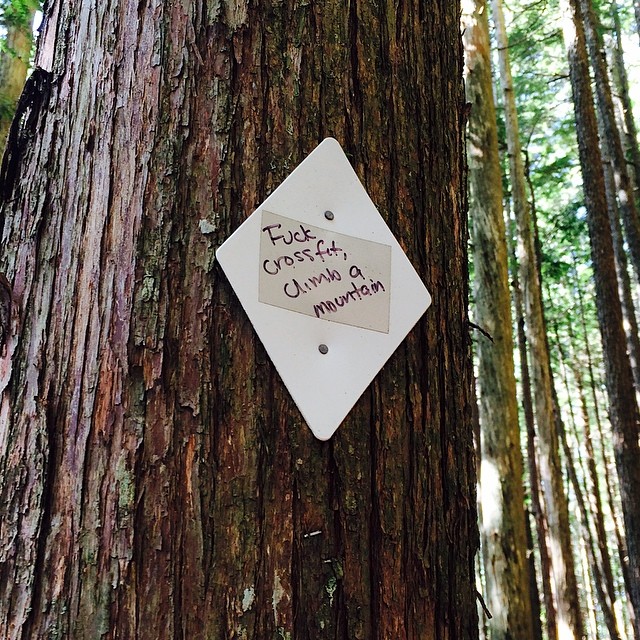 Fuck
crossfit,
climb a
mountain